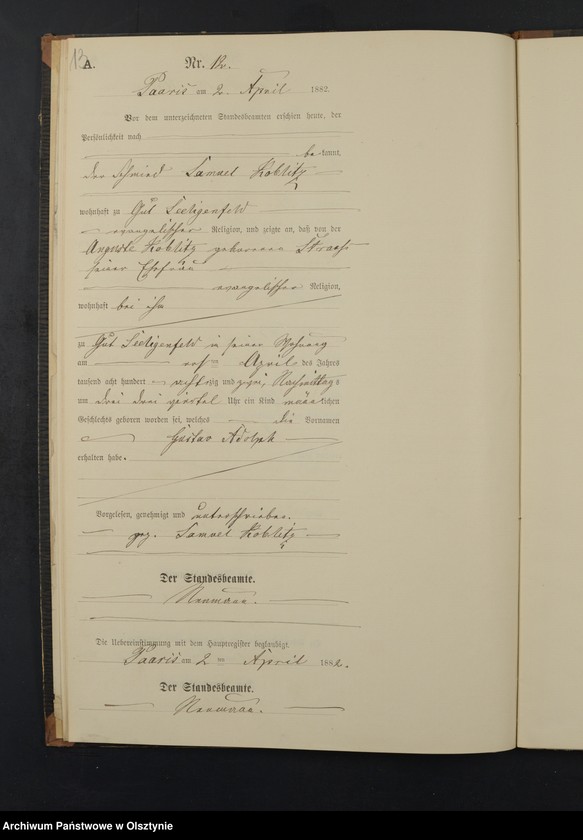 13
A. Nr. 12.
Paaris am 2. April 1882.
Von dem unterzeichneten Standesbeamten erschien heute, der
Persönlichkeit nach
bekannt,
der Schmied Samuel Koblitz
wohnhaft zu Gut Seeligenfeld
evangelischer Religion, und zeigte an, daß von der
Auguste Koblitz geborenen Strauß
seiner Ehefrau
evangelischer Religion,
wohnhaft bei ihm
zu Gut Seeligenfeld in seiner Wohnung
am ersten April des Jahres
tausend acht hundert achtzig und zwei, Nachmittags
um drei drei viertel Uhr ein Kind männlichen
Geschlechts geboren worden sei, welches die Vornamen
Gustav Adolph
erhalten habe.
Vorgelesen, genehmigt und unterschrieben.
gez. Samuel Koblitz
Der Standesbeamte.
Neumann.
Die Uebereinstimmung mit dem Hauptregister beglaubigt.
Paaris am 2 ten April 1882.
Der Standesbeamte.
Neumann.
Archiwum Państwowe w Olsztynie